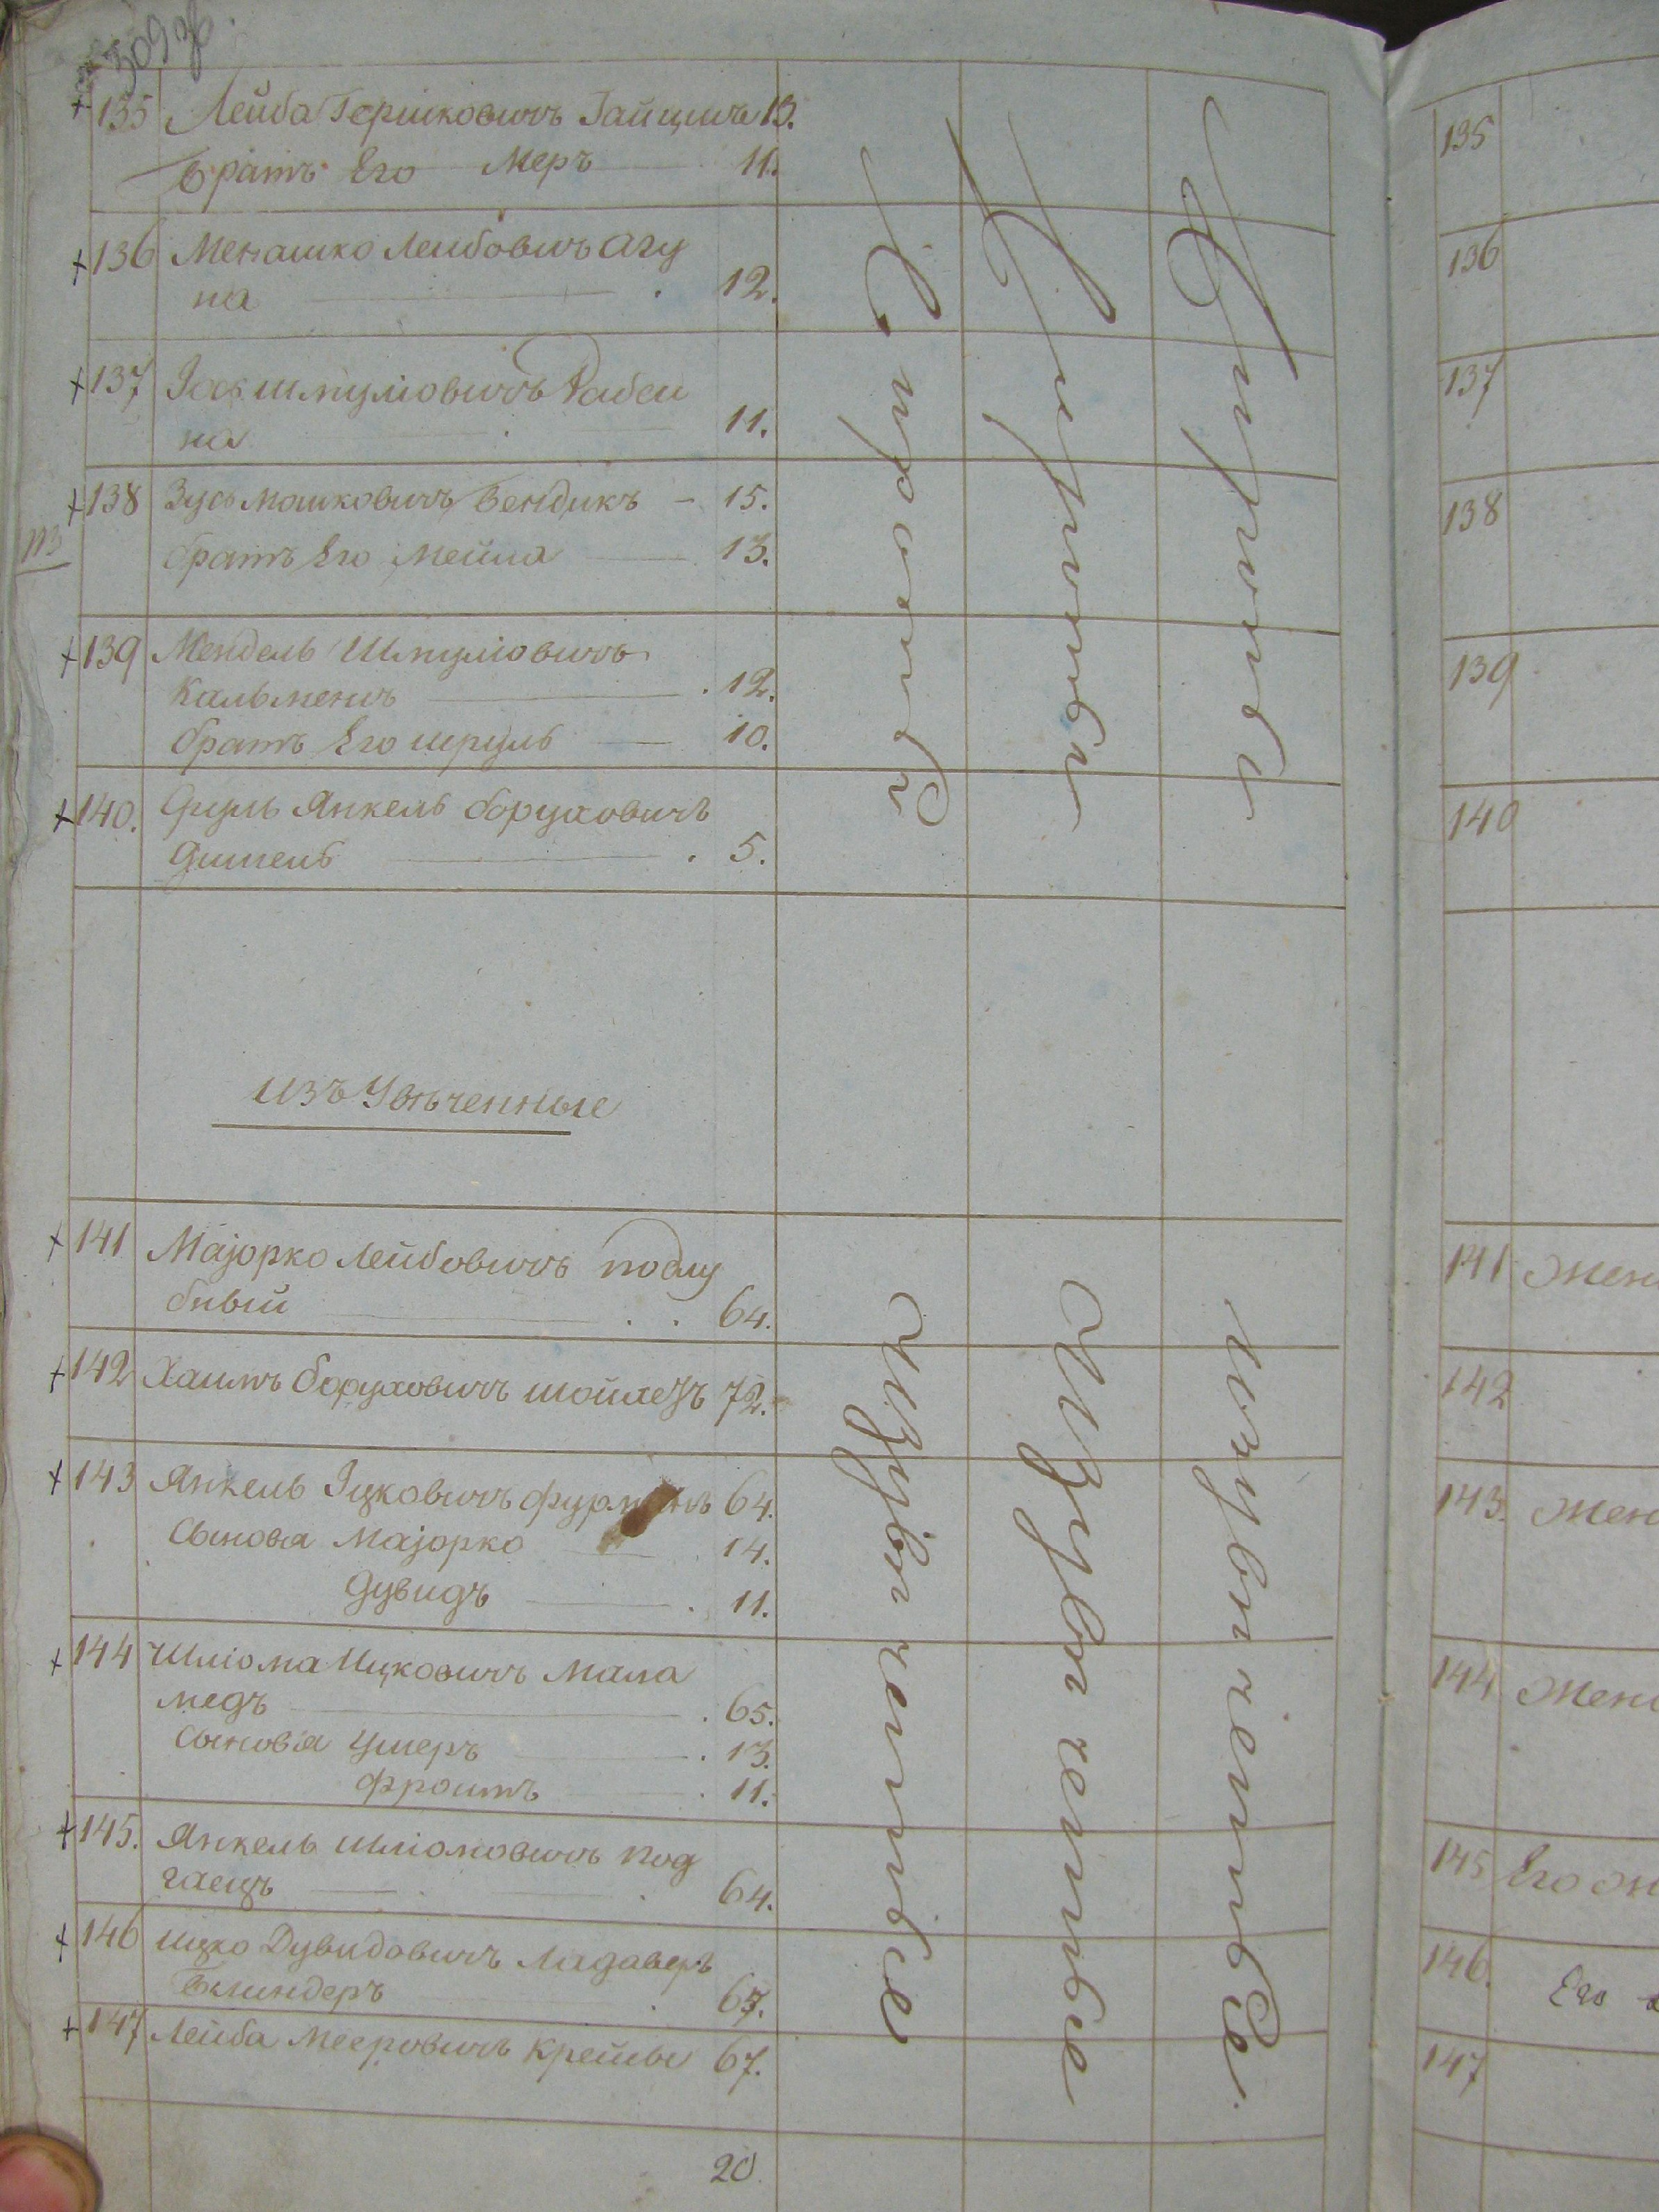 309 зв.
135 Лейба Гершковичъ Зайцигъ 13.
братъ Его Меръ 11.
136 Менашко Лейбовичъ Агу
на 12.
137 Зосъ Шмулiовичъ Рабси
на 11.
138 Зусь Мошковичъ Бендикъ 15.
братъ Его Мейла 13.
139 Мендель Шмулiовичъ
Кальменъ 12.
братъ Его Шруль 10.
140. Сруль Янкель Боруховичъ
Дитель 5.
Сироты
Сироты
Сироты
Изъ Увѣченные
141 Маjорко Лейбовичъ Подлу
бный 64.
142 Хаимъ Боруховичъ Шойхетъ 72.
143 Янкель Iцковичъ Фурманъ 64.
Сыновя Маjорко 14.
Дувидъ 11.
144 Шлiома Ицковичъ Мала
медъ 65.
Сыновя Ушеръ 13.
Фроимъ 11.
145. Янкель Шлiомовичъ Под
гаецъ 64.
146 Ицко Дувидовичъ
Блиндеръ
147 Лейба Мееровичъ 67.
Изувѣченные
Изувѣченные
Изувѣченные
20.
135
136
137
138
139
140
141 Жен
142
143. Жен
144 Жен
145 Его ж
146. Его
147